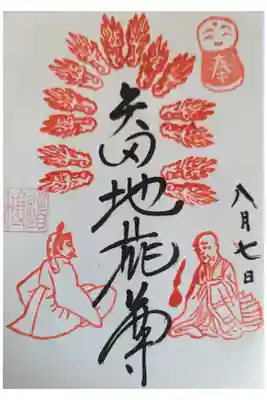 奉
矢田地蔵尊
八月七日